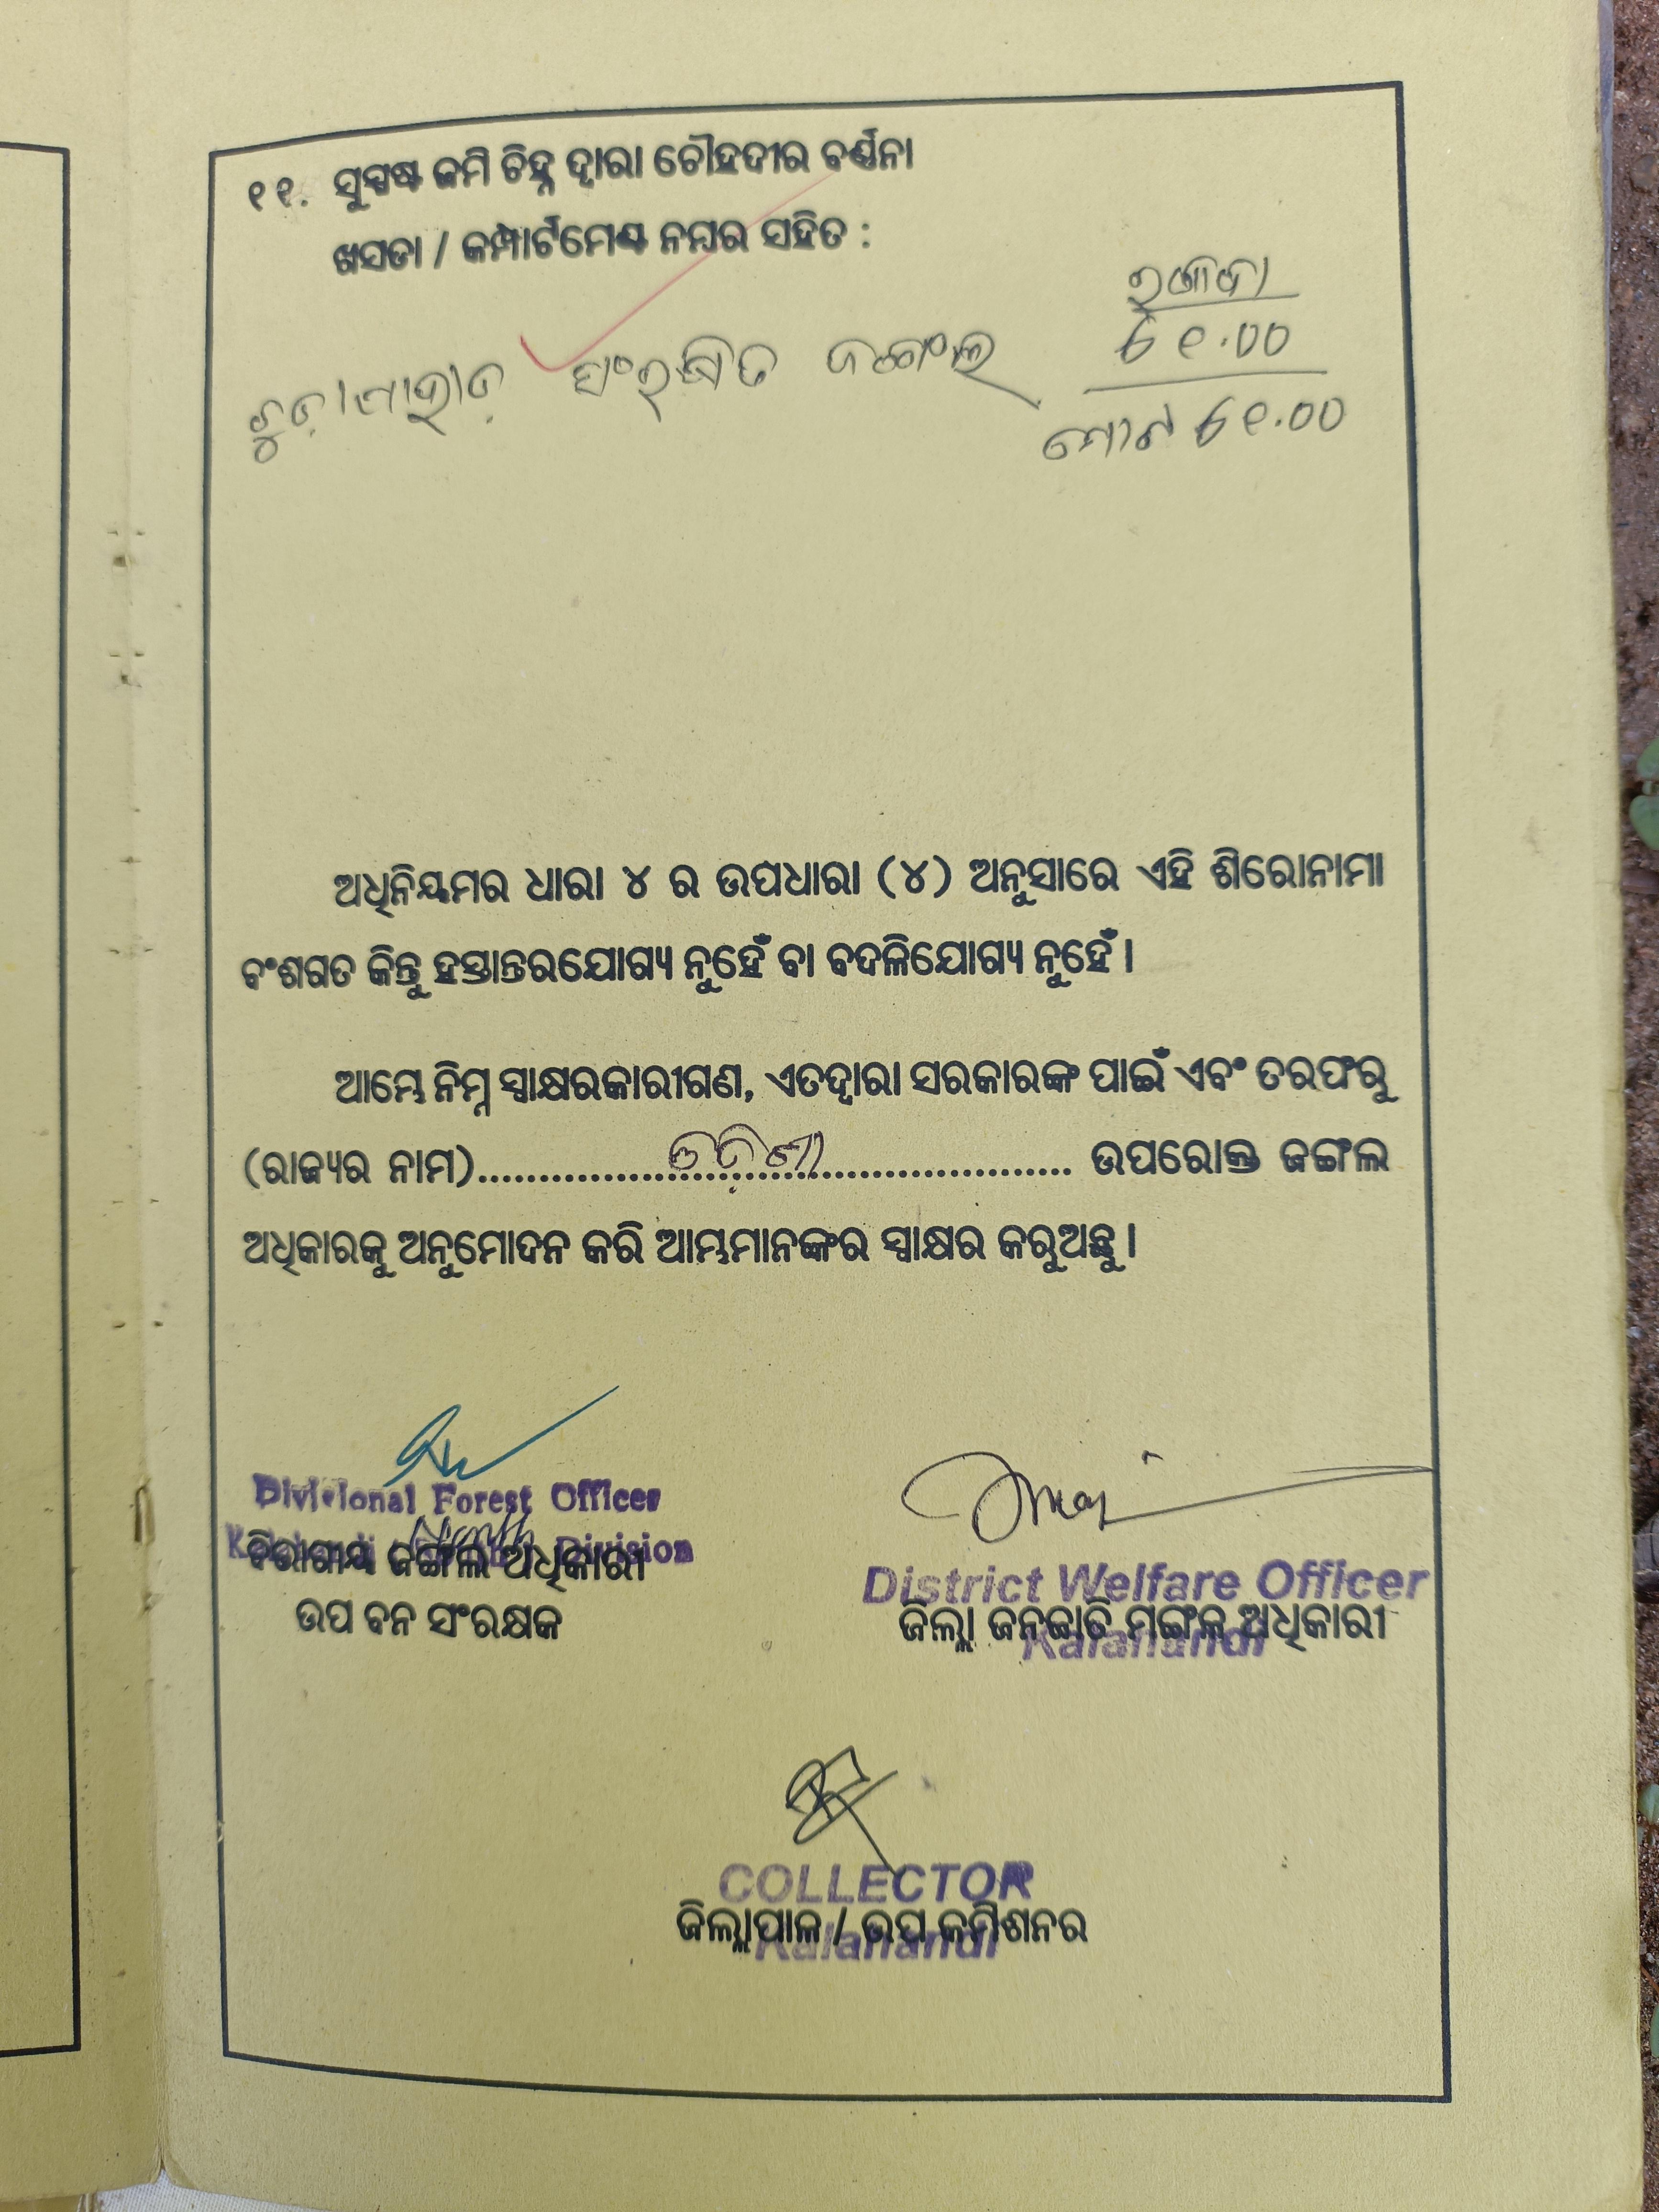 ୧୧. ସୁସ୍ପଷ୍ଟ ଜମି ଚିହ୍ନ ଦ୍ୱାରା ଚୌହଦୀର ବର୍ଣ୍ଣନା
ଖସଡା / କମ୍ପାର୍ଟମେଣ୍ଟ ନମ୍ବର ସହିତ :
ସଂରକ୍ଷିତ ଜଙ୍ଗଲ
୬୧.୦୦
ମୋଟ ୬୧.୦୦
ଅଧିନିୟମର ଧାରା ୪ ର ଉପଧାରା (୪) ଅନୁସାରେ ଏହି ଶିରୋନାମା
ବଂଶଗତ କିନ୍ତୁ ହସ୍ତାନ୍ତରଯୋଗ୍ୟ ନୁହେଁ ବା ବଦଳିଯୋଗ୍ୟ ନୁହେଁ ।
ଆମ୍ଭେ ନିମ୍ନ ସ୍ୱାକ୍ଷରକାରୀଗଣ, ଏତଦ୍ୱାରା ସରକାରଙ୍କ ପାଇଁ ଏବଂ ତରଫରୁ
(ରାଜ୍ୟର ନାମ)........ଓଡ଼ିଶା........ ଉପରୋକ୍ତ ଜଙ୍ଗଲ
ଅଧିକାରକୁ ଅନୁମୋଦନ କରି ଆମ୍ଭମାନଙ୍କର ସ୍ୱାକ୍ଷର କରୁଅଛୁ ।
Divisional Forest Officer
Division
ବିଭାଗୀୟ ଜଙ୍ଗଲ ଅଧିକାରୀ
ଉପ ବନ ସଂରକ୍ଷକ
District Welfare Officer
ଜିଲ୍ଲା ଜନଜାତି ମଙ୍ଗଳ ଅଧିକାରୀ
Kalahandi
COLLECTOR
ଜିଲ୍ଲାପାଳ / ଉପ କମିଶନର
Kalahandi